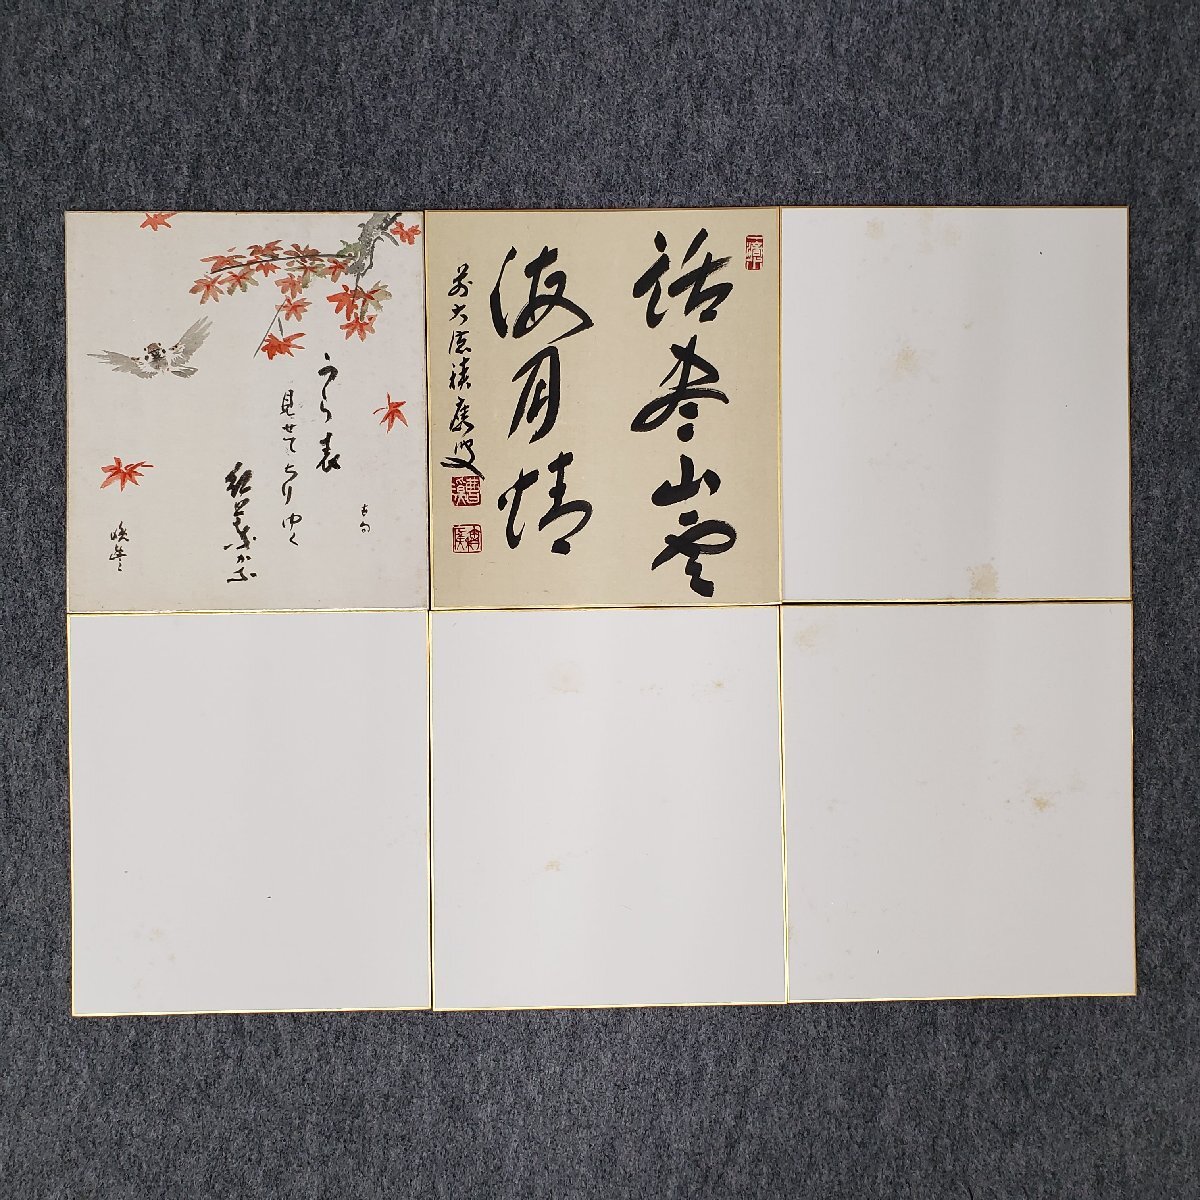 うら表
見せてちりゆく
紅葉かな
古句
話尽山雲
海月情
前大徳積應叟